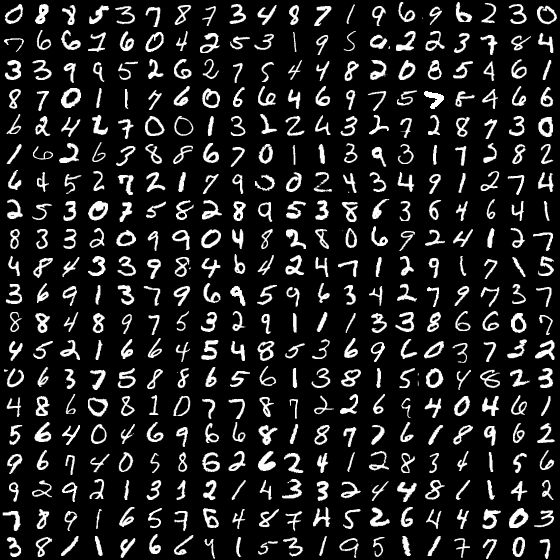 0 8 8 5 3 7 8 7 3 4 8 7 1 9 6 9 6 2 3 0
7 6 6 1 6 0 4 2 5 3 1 9 5 0 2 2 3 7 8 4
3 3 9 9 5 2 6 2 7 5 4 4 8 2 0 8 5 4 6 1
8 7 0 1 1 7 6 0 6 6 4 6 9 7 5 7 8 4 6 6
6 2 4 2 7 0 0 1 3 2 2 4 3 2 7 2 8 7 3 0
1 6 2 6 3 8 8 6 7 0 1 1 3 9 3 1 7 2 8 2
6 4 5 2 7 2 1 7 9 0 0 2 4 3 4 9 1 2 7 4
2 5 3 0 7 5 8 2 8 9 5 3 8 6 3 6 4 6 4 1
8 3 3 2 0 9 9 0 4 8 2 8 0 6 9 2 4 1 2 7
4 8 4 3 3 9 8 4 6 4 2 4 7 1 2 9 1 7 1 5
3 6 9 1 3 7 9 6 9 5 9 6 3 4 2 7 9 7 3 7
8 8 4 8 9 7 5 3 2 9 1 1 1 3 3 8 6 6 0 7
4 5 2 1 6 6 4 5 4 8 5 3 6 9 6 0 3 7 3 2
0 6 3 7 5 8 8 6 5 6 1 3 8 1 5 0 4 8 2 3
4 8 6 0 8 1 0 7 7 8 7 2 2 6 9 4 0 4 6 1
5 6 4 0 4 6 9 6 6 8 1 8 7 7 6 1 8 9 6 2
9 6 7 4 0 5 8 6 2 6 2 4 1 2 8 3 4 1 5 6
9 2 9 2 1 3 1 2 1 4 3 3 2 4 4 8 1 1 4 2
7 8 9 1 6 5 7 6 4 8 7 4 5 2 6 4 4 5 0 3
3 8 1 1 4 6 6 4 1 5 3 1 9 5 1 1 7 7 0 7